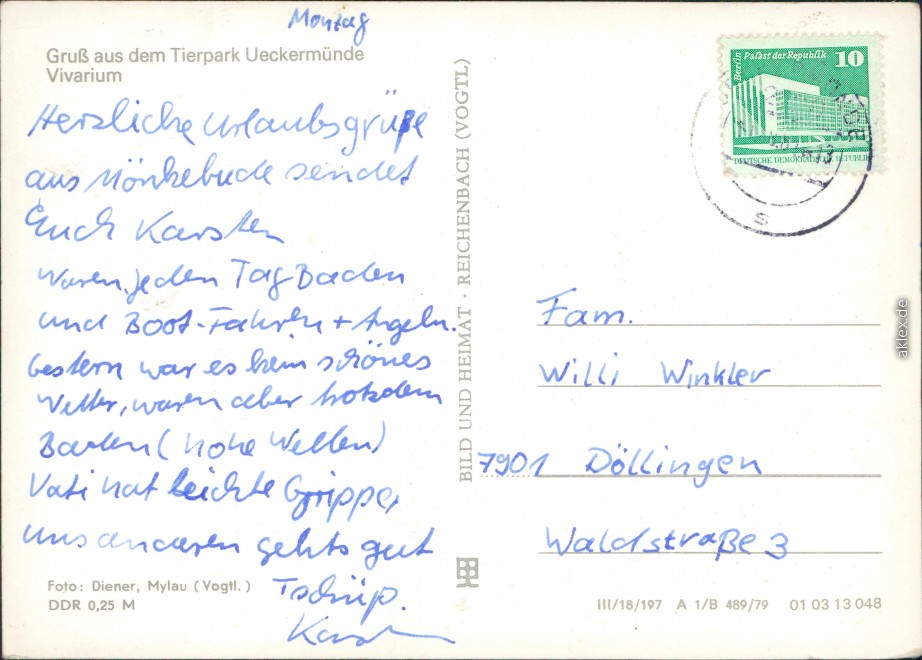 Montag
Gruß aus dem Tierpark Ueckermünde
Vivarium
Herzliche Urlaubsgrüße
aus Mönkebude sendet
Euch Karsten
Waren jeden Tag Baden
und Boot-Fahren + Angeln.
Gestern war es kein schönes
Wetter, waren aber trotzdem
Baden (hohe Wellen)
Vati hat leichte Grippe,
uns anderen gehts gut
Tschüß.
Karsten
Foto: Diener, Mylau (Vogtl.)
DDR 0,25 M
BILD UND HEIMAT · REICHENBACH (VOGTL)
Berlin Palast der Republik 10
DEUTSCHE DEMOKRATISCHE REPUBLIK
s
Fam.
Willi Winkler
7901 Döllingen
Waldstraße 3
III/18/197 A 1/B 489/79 01 03 13 048
aklex.de